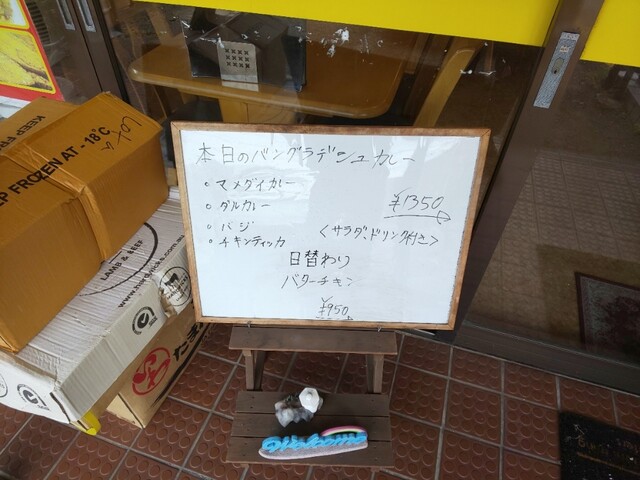 本日のバングラデシュカレー
。マメダイカレー
。ダルカレー
。バジ
。チキンティッカ
¥1350
<サラダ、ドリンク付き>
日替わり
バターチキン
¥950
KEEP FROZEN AT -18°C
LAMB & BEEF
Welcome